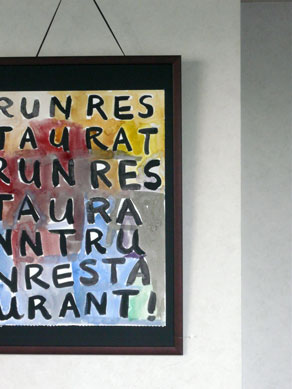 RUNRES
TAURAT
RUNRES
TAURA
NNTRU
NRESTA
URANT!